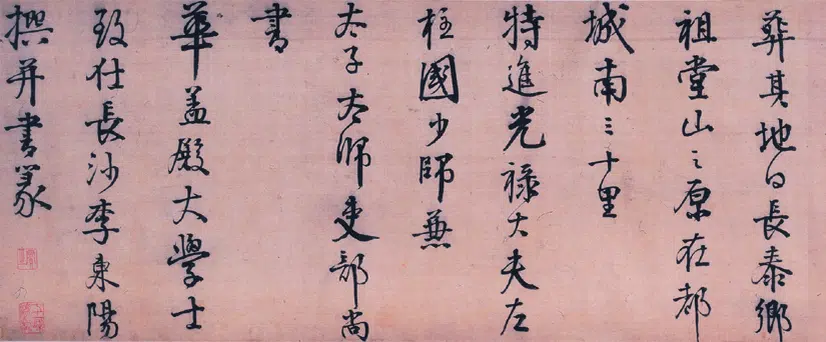 葬其地曰長泰鄉
祖堂山之原在都
城南三十里
特進光祿大夫左
柱國少師兼
太子太師吏部尚
書
華蓋殿大學士
致仕長沙李東陽
撰并書篆